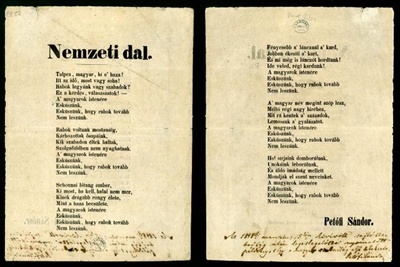 Nemzeti dal.
Talpra, magyar, hí a' haza!
Itt az idő, most vagy soha!
Rabok legyünk vagy szabadok?
Ez a' kérdés, válasszatok! —
A' magyarok istenére
Esküszünk,
Esküszünk, hogy rabok tovább
Nem leszünk.
Rabok voltunk mostanáig,
Kárhozottak ősapáink,
Kik szabadon éltek haltak,
Szolgaföldben nem nyughatnak.
A' magyarok istenére
Esküszünk,
Esküszünk, hogy rabok tovább
Nem leszünk.
Sehonnai bitang ember,
Ki most, ha kell, halni nem mer,
Kinek drágább rongy élete,
Mint a haza becsülete.
A magyarok istenére
Esküszünk,
Esküszünk, hogy rabok tovább
Nem leszünk.
Fényesebb a' láncznál a' kard,
Jobban ékesíti a' kart,
És mi még is lánczot hordtunk!
Ide veled, régi kardunk!
A magyarok istenére
Esküszünk,
Esküszünk, hogy rabok tovább
Nem leszünk.
A' magyar név megint szép lesz,
Méltó régi nagy hiréhez,
Mit rá kentek a' századok,
Lemossuk a' gyalázatot.
A magyarok istenére
Esküszünk,
Esküszünk, hogy rabok tovább
Nem leszünk.
Hol sirjaink domborulnak,
Unokáink leborulnak,
És áldó imádság mellett
Mondják el szent neveinket.
A magyarok istenére
Esküszünk,
Esküszünk, hogy rabok tovább
Nem leszünk.
Petőfi Sándor.
Az 1848